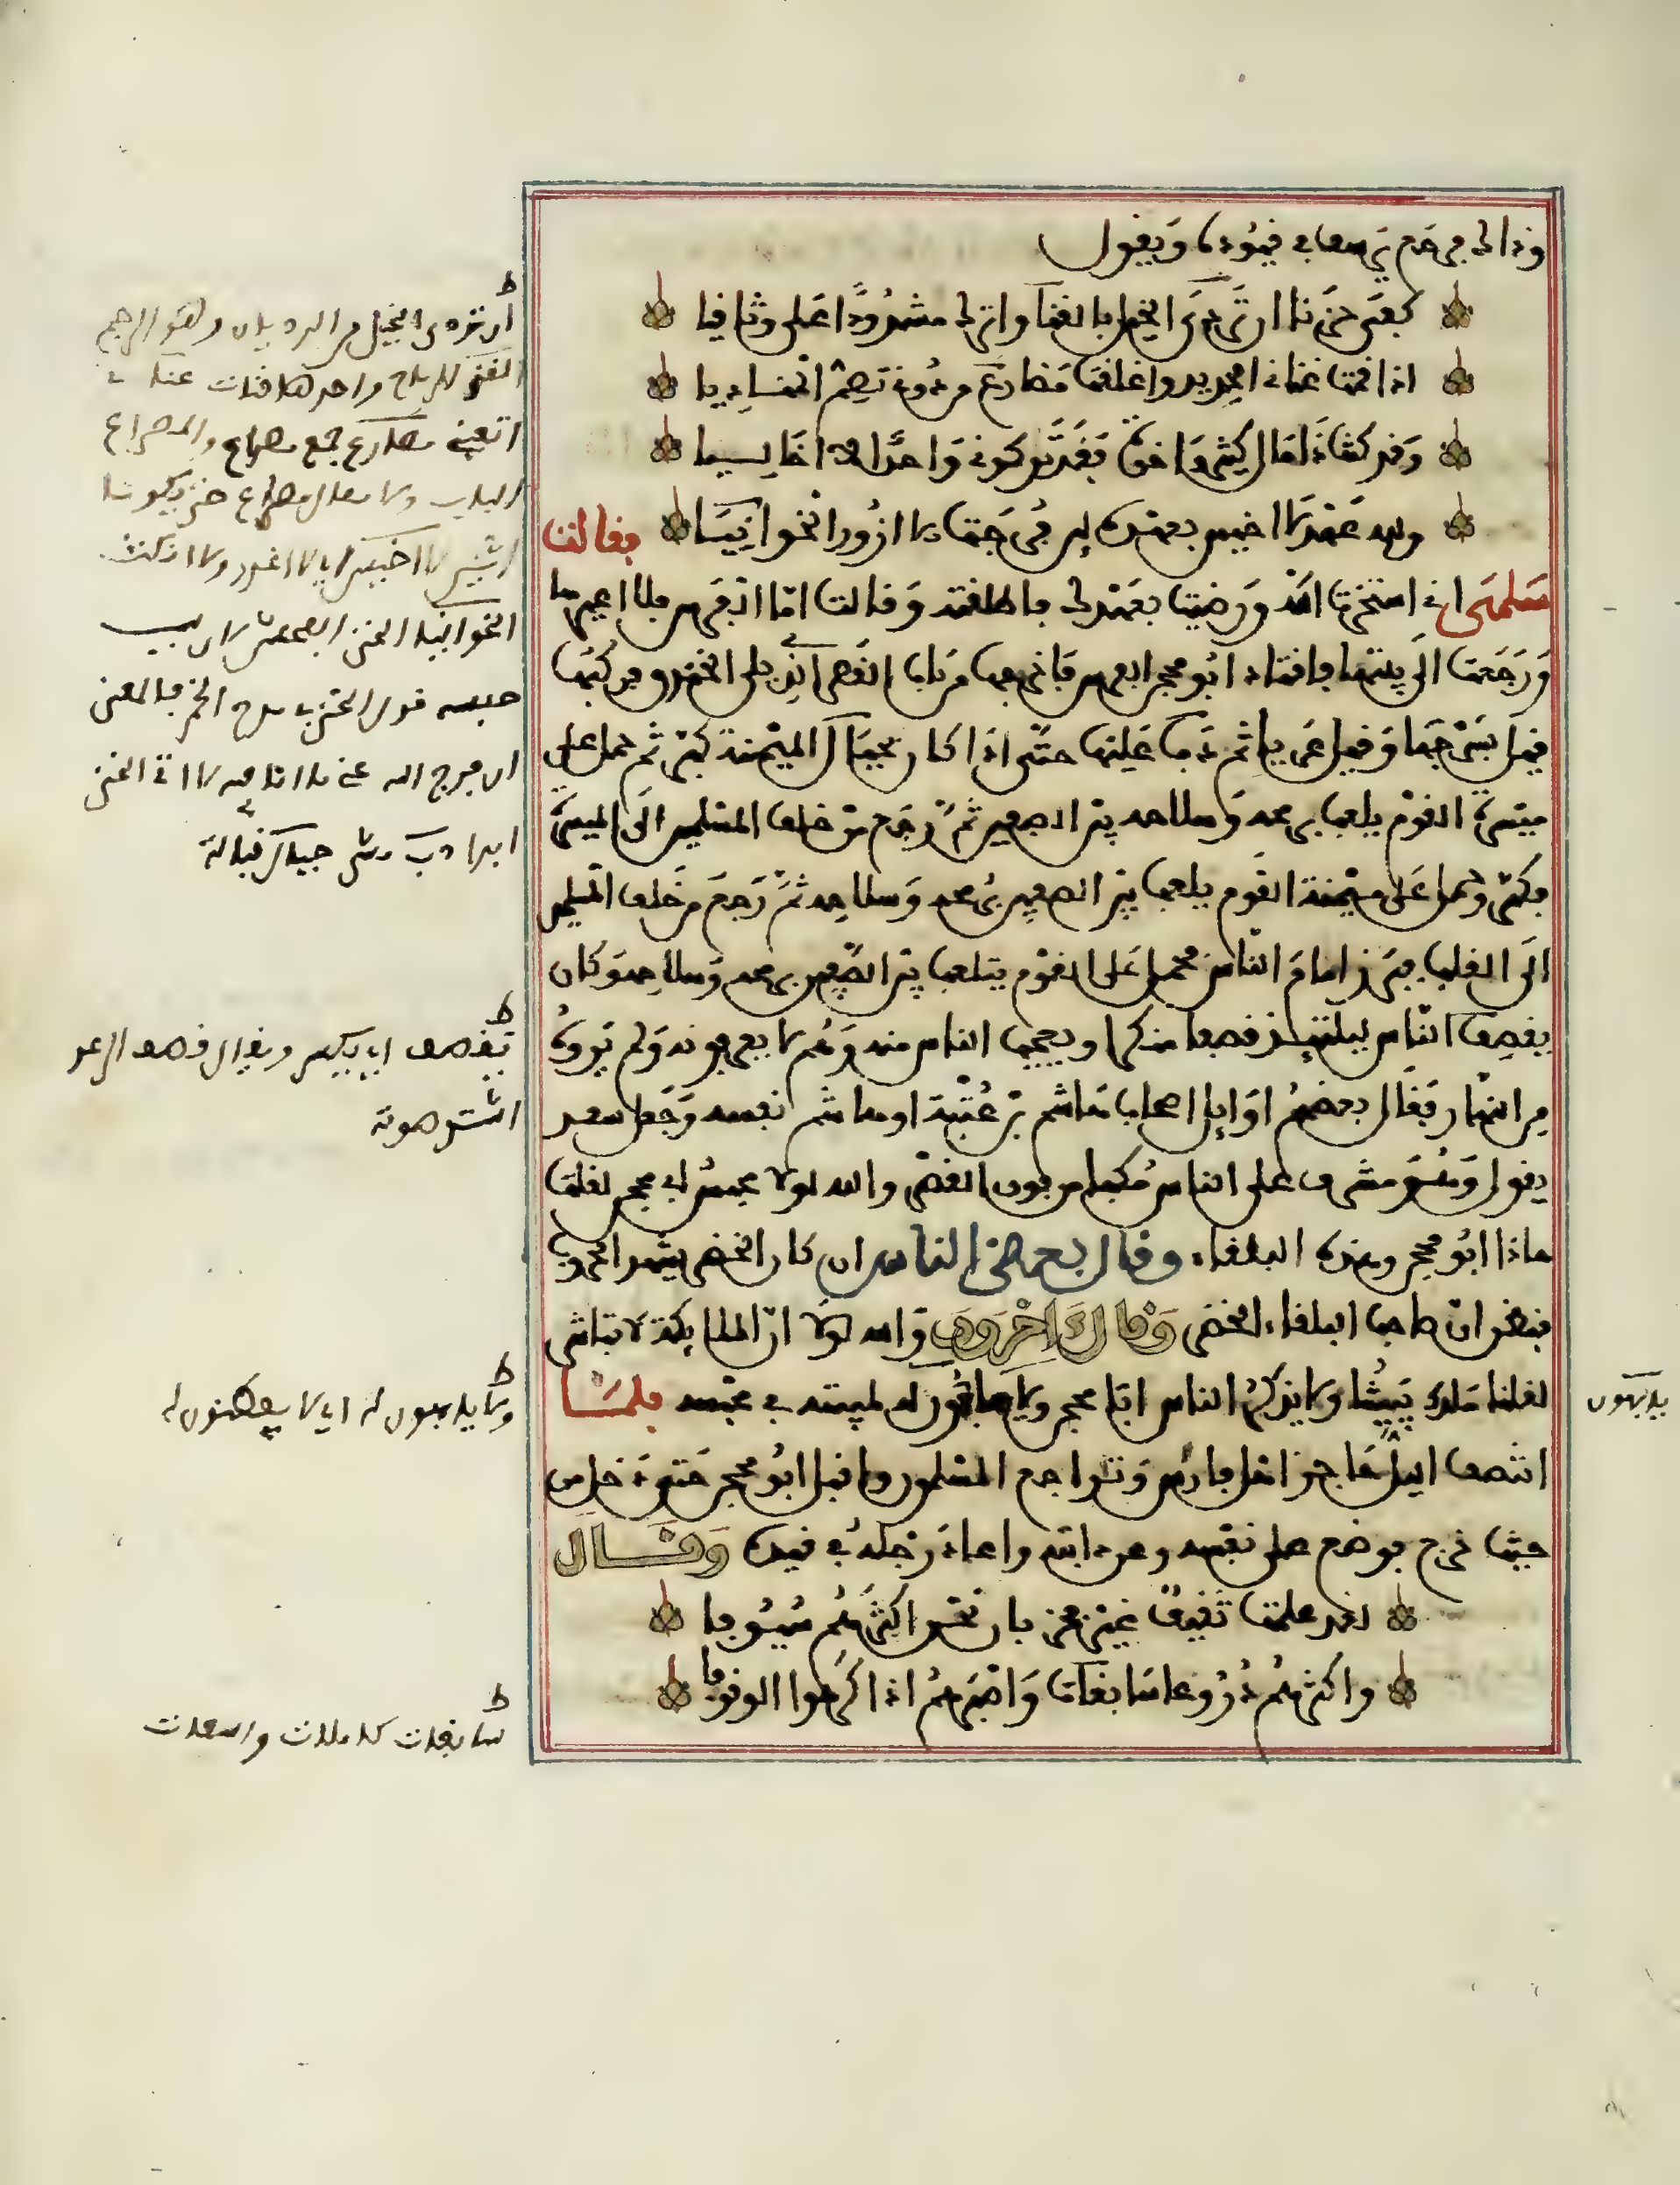 وذالك فرجع يرسف في قيوده ويقول
كفى حزنا ان تردى الخيل بالقنا واترك مشدودا على وثاقيا
اذا قمت عناني الحديد واغلقت مصارع من دوني تصم المناديا
وقد كنت ذا مال كثير واخوة فقد تركوني واحدا لا اخا ليا
ولله عهد لا اخيس بعهده لين فرجت الا ازور الحوانيا فقالت
سلمى اني استخرت الله ورضيت بعهدك فاطلقته وقالت اما الفرس فلا اعيرها
ورجعت الى بيتها فاقتاد ابو محجن الفرس فاخرجها من باب القصر الذي يلي الخندق فركبها
قيل بسرجها وقيل عريا ثم دب عليها حتى اذا كان بحيال الميمنة كبر ثم حمل على
ميسرة القوم يلعب برمحه وسلاحه بين الصفين ثم رجع من خلف المسلمين الى الميسرة
فكبر وحمل على ميمنة القوم يلعب بين الصفين برمحه وسلاحه ثم رجع من خلف المسلمين
الى القلب فبرز امام الناس فحمل على القوم يتلعب بين الصفين برمحه وسلاحه وكان
يقصف الناس ليلتيذ قصفا منكرا ويعجب الناس منه وهم لا يعرفونه ولم يروه
من النهار فقال بعضهم اوايل اصحاب هاشم بن عتبة او هاشم نفسه وجعل سعد
يقول وهو مشرف على الناس مكبا من فوق القصر والله لولا محبس ابي محجن لقلت
هاذا ابو محجن وهذه البلقاء وقال بعض الناس ان كان الخضر يشهد الحروب
فنظن ان صاحب البلقاء الخضر وقال اخرون والله لولا ان الملايكة لا تباشر
لقلنا ملك يثبتنا ولا يذكر الناس ابا محجن ولا يابهون له لمبيته في محبسه فلما
انتصف الليل حاجز اهل فارس وتراجع المسلمون واقبل ابو محجن حتى دخل من
حيث خرج فوضع على نفسه وعن دابته واعاد رجله في قيده وقال
لقد علمت ثقيف غير فخر بان نحن اكثرهم سيوفا
واكثرهم دروعا سابغات واصبرهم اذا كرهوا الوقوفا
ط
ان تردى الخيل من الرديان وهو الرجم
القنى الرماح واحدها قنات عناني
اتعبني مصارع جمع مصراع والمصراع
الباب
لا اخيس اي لا اغدر ولا انكث
الحوانيا
ابدا
حيال قبالة
ط
يقصف اي يكسر ويقال قصف الرعد
اشتد صوته
ط
ولا يابهون له اي لا يفطنون له
يابهون
ط
سابغات كاملات واسعات